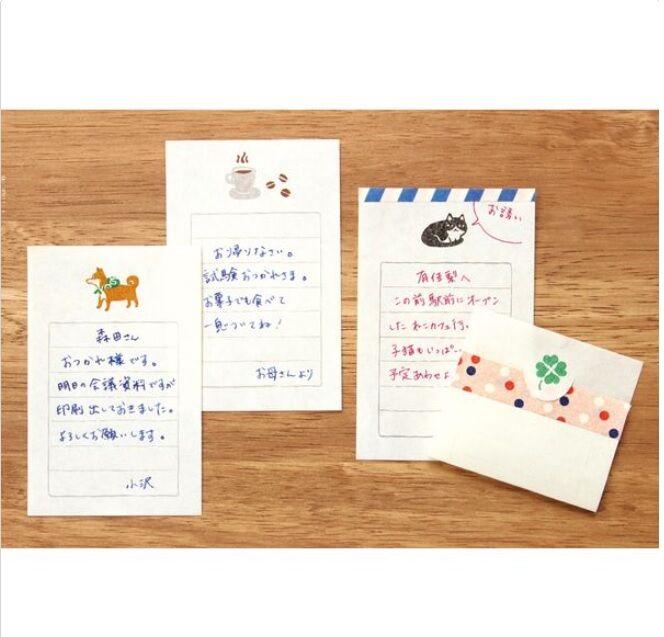 森田さん
おつかれ様です。
明日の会議資料ですが
印刷出しておきました。
よろしくお願いします。
小沢
お帰りなさい。
試験おつかれさま。
お菓子でも食べて
一息ついてね!
お母さんより
お誘い
有佳梨へ
この前駅前にオープン
したねこカフェ行
子猫もいっぱい
予定あわせよ